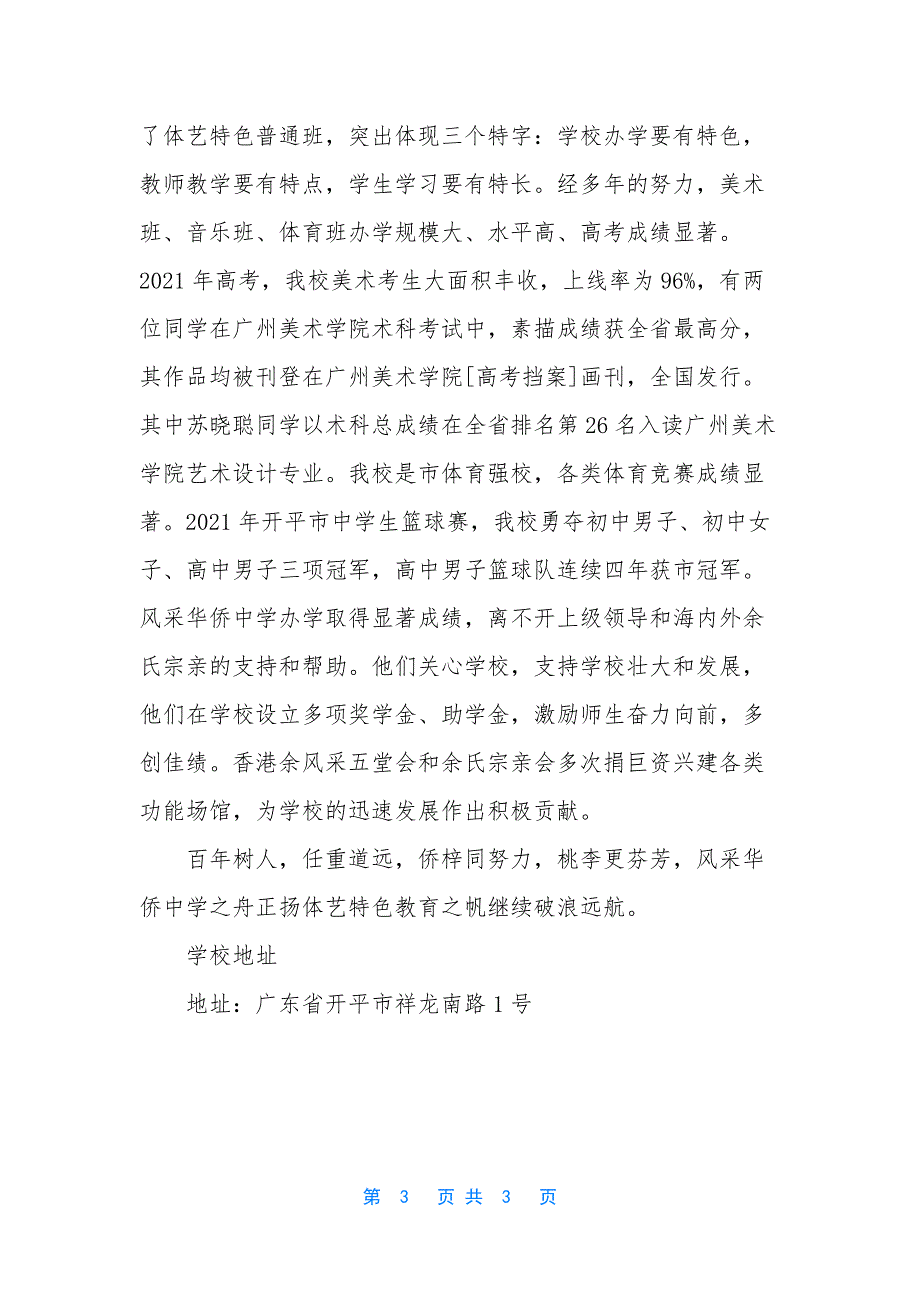 了体艺特色普通班，突出体现三个特字：学校办学要有特色，
教师教学要有特点，学生学习要有特长。经多年的努力，美术
班、音乐班、体育班办学规模大、水平高、高考成绩显著。
2021 年高考，我校美术考生大面积丰收，上线率为 96%，有两
位同学在广州美术学院术科考试中，素描成绩获全省最高分，
其作品均被刊登在广州美术学院[高考挡案]画刊，全国发行。
其中苏晓聪同学以术科总成绩在全省排名第 26 名入读广州美术
学院艺术设计专业。我校是市体育强校，各类体育竞赛成绩显
著。2021 年开平市中学生篮球赛，我校勇夺初中男子、初中女
子、高中男子三项冠军，高中男子篮球队连续四年获市冠军。
风采华侨中学办学取得显著成绩，离不开上级领导和海内外余
氏宗亲的支持和帮助。他们关心学校，支持学校壮大和发展，
他们在学校设立多项奖学金、助学金，激励师生奋力向前，多
创佳绩。香港余风采五堂会和余氏宗亲会多次捐巨资兴建各类
功能场馆，为学校的迅速发展作出积极贡献。
百年树人，任重道远，侨梓同努力，桃李更芬芳，风采华
侨中学之舟正扬体艺特色教育之帆继续破浪远航。
学校地址
地址：广东省开平市祥龙南路 1 号
第 3 页 共 3 页